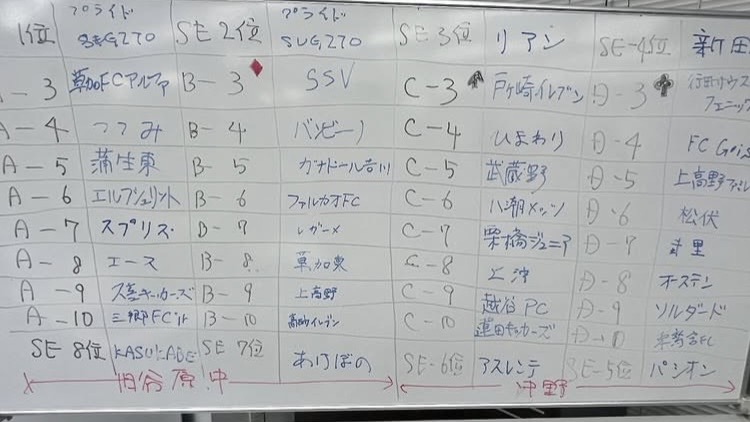 1位 プライド SEG270 SE2位 プライド SUG270 SE3位 リアン SE-4位 新田
A-3 草加FCアルファ B-3 SSV C-3 戸ヶ崎イレブン D-3 行田サウスフェニックス
A-4 つつみ B-4 バンビーノ C-4 ひまわり D-4 FC
A-5 蒲生東 B-5 ガナドール吉川 C-5 武蔵野 D-5 上高野
A-6 エルフシュリット B-6 ファルカオFC C-6 八潮メッツ D-6 松伏
A-7 スプリス B-7 レガーメ C-7 栗橋ジュニア D-7
A-8 エース B-8 草加東 C-8 上沖 D-8 オーステン
A-9 キッカーズ B-9 上高野 C-9 越谷PC D-9 ソルダード
A-10 三郷FC B-10 イレブン C-10 蓮田キッカーズ D-10 FC
SE8位 KASUKABE SE7位 あけぼの SE-6位 アスレンテ SE-5位 パシオン
旧谷原中 沖野